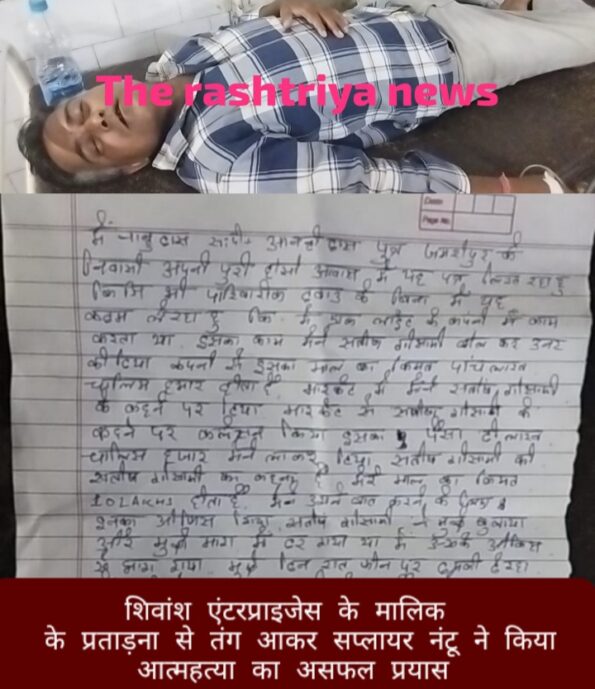 The rashtriya news
Date
Page No.
मैं दास पुत्र जमशेदपुर के
निवासी अपनी पुरी होसो आवास में यह पत्र लिख रहा हु
किसी भी पारिवारीक दवाउ के बिना में यह
कदम ले रहा हु कि मैं के कंपनी में काम
करता था इसका काम मैंने गोसामी बोल कर
कंपनी में इसका माल का किमत पांच लाख
चालिस हजार होता है मारकेट में मैंने सतोष गोसामी
के कहने पर दिया मारकेट से सतोष गोसामी के
कहने पर किया इसका पैसा दो लाख
चालिस हजार मैंने लाकर दिया सतोष गोसामी को
सतोष गोसामी का कहना है मेरे माल का किमत
10 LAKHS होता है मैंने उनसे बात करने के
इनका ऑफिस गया सतोष गोसामी ने मुझे बुलाया
और मुझे मारा में डर गया था में उसके ऑफिस
से भाग गया मुझे दिन रात फोन पर धमकी दे रहा
शिवांश एंटरप्राइजेस के मालिक
के प्रताड़ना से तंग आकर सप्लायर नंटू ने किया
आत्महत्या का असफल प्रयास